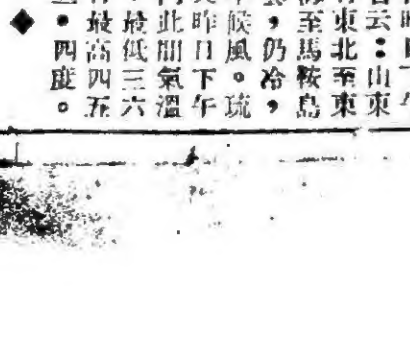 午
云：山東
東北至東
至馬鞍島
，仍冷，
候風。琉
昨日下午
此間氣溫
最低三六
最高四五
・四度。
◆